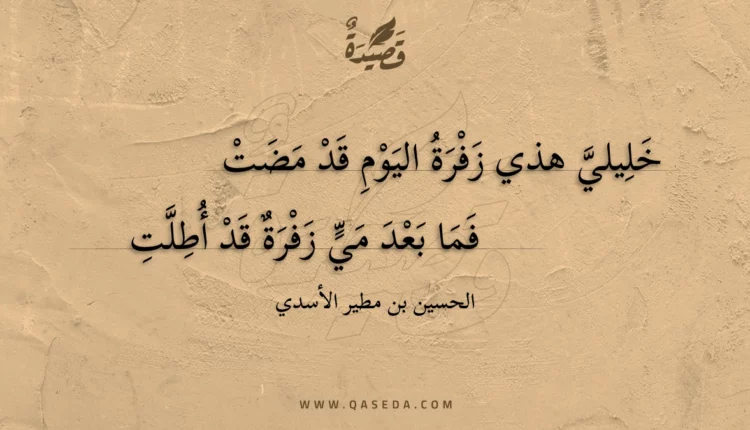 قَصِيدَةٌ
خَلِيلِيَّ هذي زَفْرَةُ اليَوْمِ قَدْ مَضَتْ
فَمَا بَعْدَ مَيٍّ زَفْرَةٌ قَدْ أُطِلَّتِ
الحسين بن مطير الأسدي
WWW.QASEDA.COM